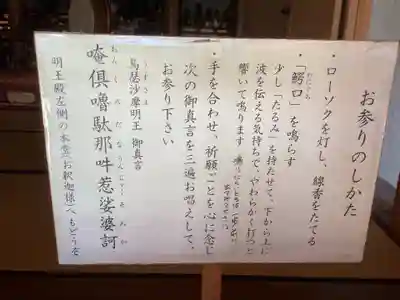 お参りのしかた
・ローソクを灯し、線香をたてる
・「鰐口」を鳴らす
わにぐち
少し「たるみ」を持たせて、下から上に
波を伝える気持ちで、やわらかく打つと
響いて鳴ります
・手を合わせ、祈願ごとを心に念じ
次の御真言を三遍お唱えして、
お参り下さい
烏瑟沙摩明王 御真言
うすさま
唵俱嚕駄那吽惹娑婆訶
おん くろだなう
明王殿左側の本堂、お釈迦様へもどうぞ